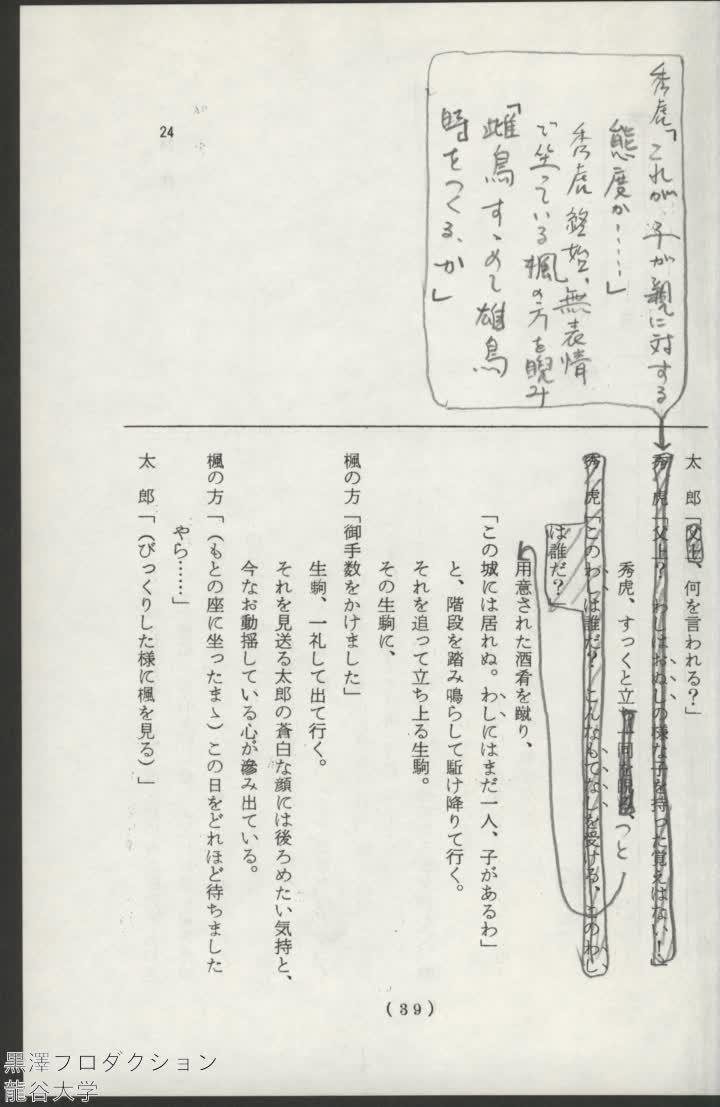 秀虎「これが、子が親に対する
態度か……」
秀虎 終始、無表情
で坐っている楓の方を睨み
「雌鳥すゝめて雄鳥
時をつくる、か」
24
太　郎「父上、何を言われる？」
秀　虎「父上？　わしはおぬしの様な子を持った覚えはない！」
秀虎、すっくと立ち一同を睨み、つと
秀　虎「このわしは誰だ？　こんなもてなしを受ける、このわし
は誰だ？
用意された酒肴を蹴り、
「この城には居れぬ。わしにはまだ一人、子があるわ」
と、階段を踏み鳴らして駈け降りて行く。
それを追って立ち上る生駒。
その生駒に、
楓の方「御手数をかけました」
生駒、一礼して出て行く。
それを見送る太郎の蒼白な顔には後ろめたい気持と、
今なお動揺している心が滲み出ている。
楓の方「（もとの座に坐ったまゝ）この日をどれほど待ちました
やら……」
太　郎「（びっくりした様に楓を見る）」
(39)
黒澤プロダクション
龍谷大学